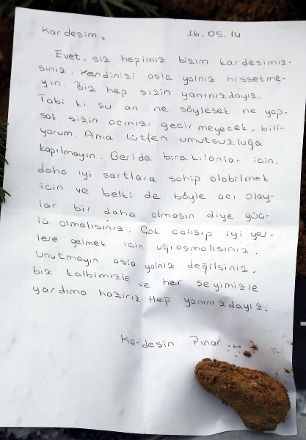 Kardeşim, 16.05.14
Evet, siz hepiniz bizim kardeşimiz-
siniz. Kendinizi asla yalnız hissetme-
yin. Biz hep sizin yanınızdayız.
Tabi ki şu an ne söylesek ne yap-
sak sizin acınızı geçirmeyecek, bili-
yorum. Ama lütfen umutsuzluğa
kapılmayın. Geride bırakılanlar için,
daha iyi şartlara sahip olabilmek
için ve belki de böyle acı olay-
lar bir daha olmasın diye güç-
lü olmalısınız. Çok çalışıp iyi yer-
lere gelmek için uğraşmalısınız.
Unutmayın asla yalnız değilsiniz.
biz kalbimizle ve her şeyimizle
yardıma hazırız hep yanınızdayız.
Kardeşin Pınar...